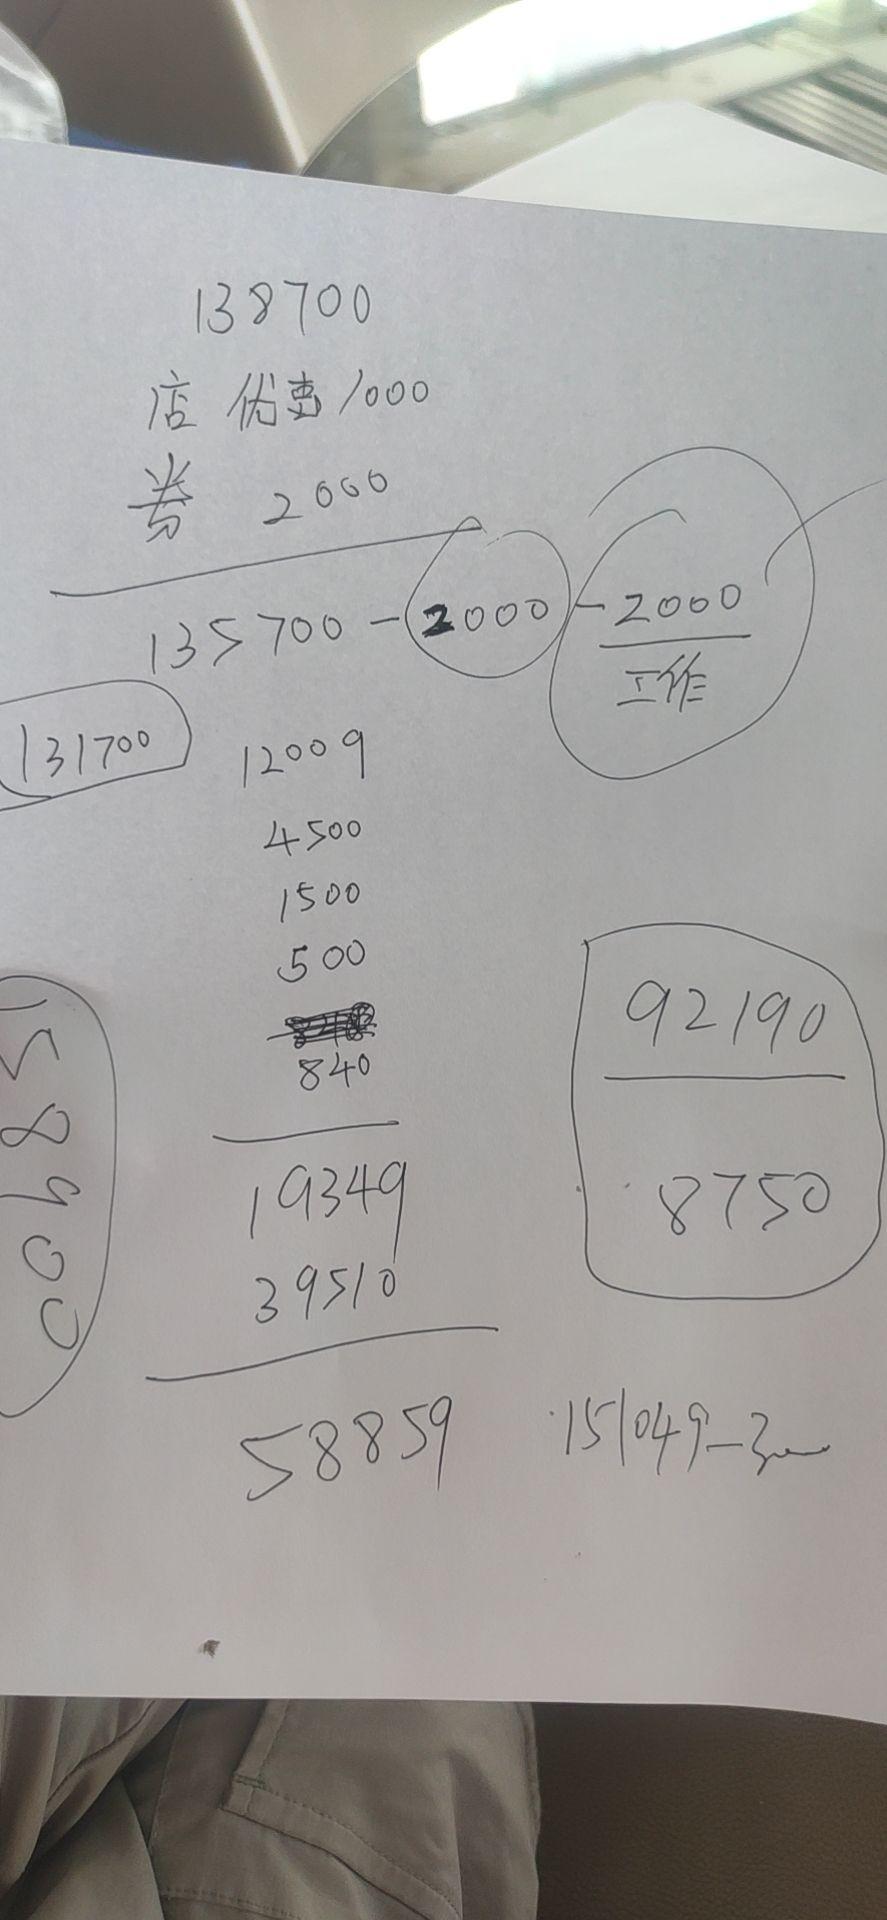 138700
店 优惠1000
券 2000
135700 - 2000 - 2000
工作
131700
12009
4500
1500
500
840
19349
39510
58859
92190
8750
151049-3000
58900